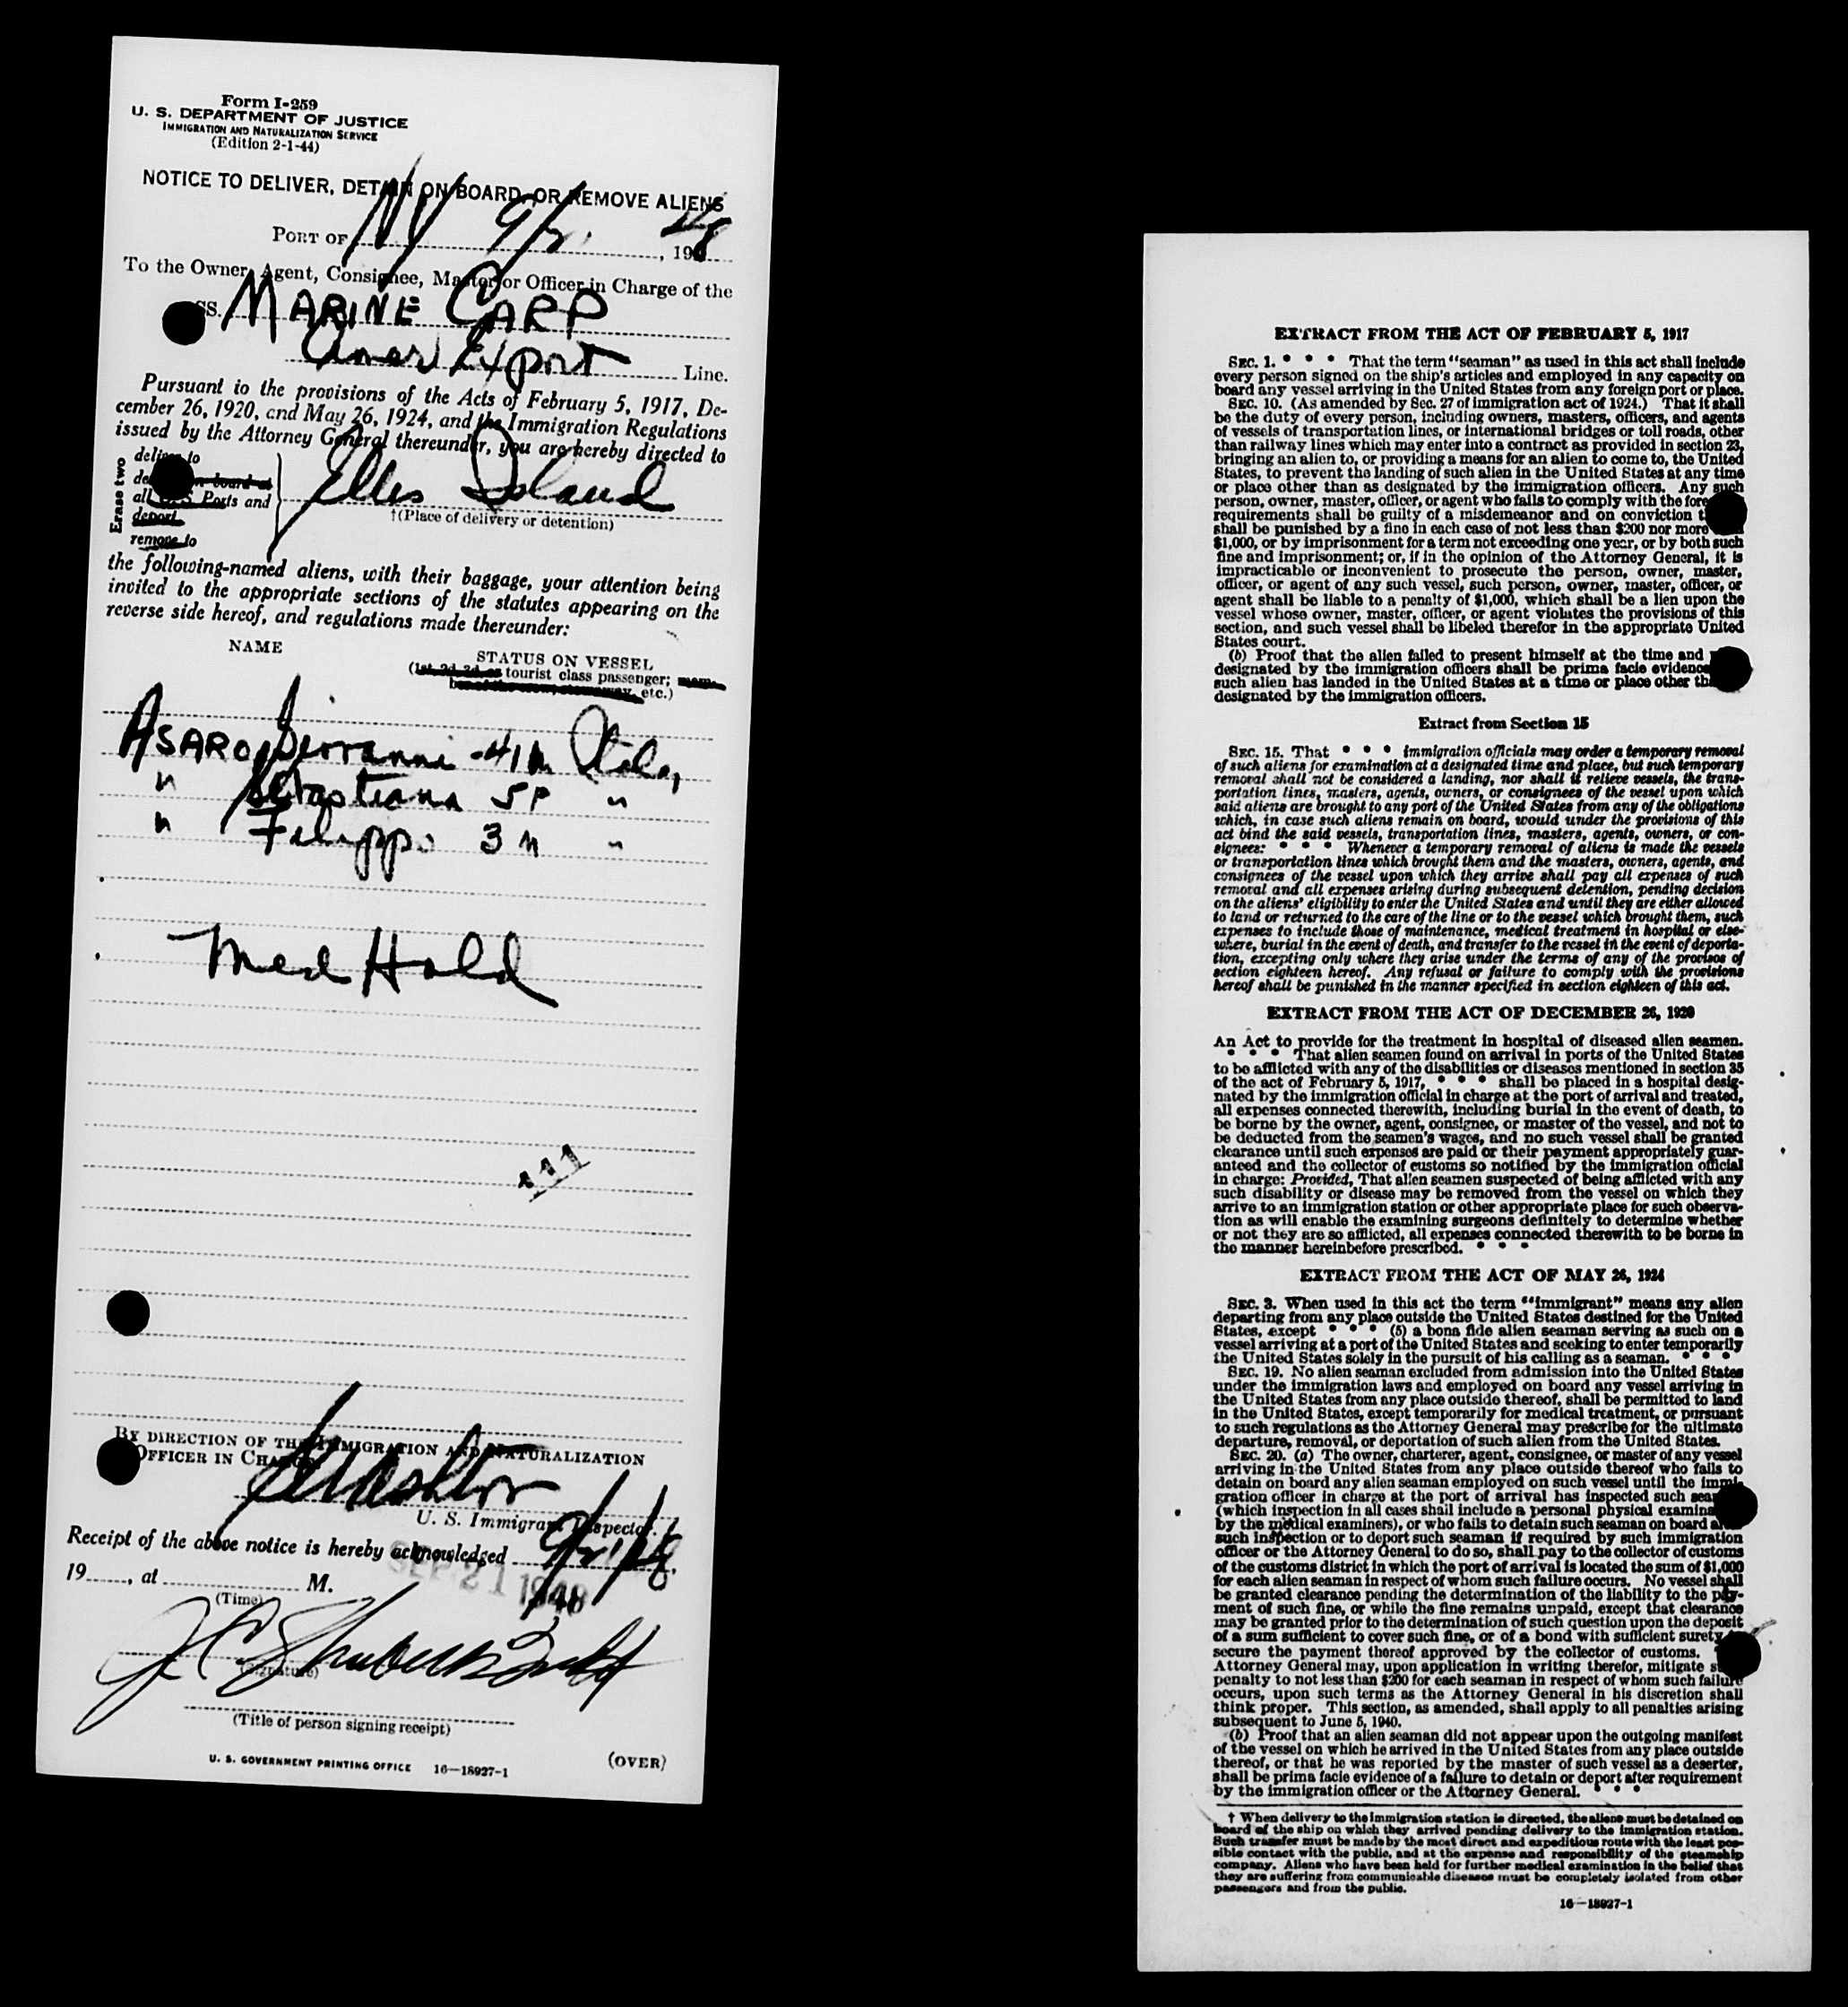 Form I-259
U. S. DEPARTMENT OF JUSTICE
IMMIGRATION AND NATURALIZATION SERVICE
(Edition 2-1-44)
NOTICE TO DELIVER, DETAIN ON BOARD, OR REMOVE ALIENS
PORT OF NY 9/21, 1948
To the Owner, Agent, Consignee, Master or Officer in Charge of the
SS. MARINE CARP
Amer Export Line.
Pursuant to the provisions of the Acts of February 5, 1917, De-
cember 26, 1920, and May 26, 1924, and the Immigration Regulations
issued by the Attorney General thereunder, you are hereby directed to
Erase two
deliver to
on board at
all Ports and
deport
remove to
Ellis Island
†(Place of delivery or detention)
the following-named aliens, with their baggage, your attention being
invited to the appropriate sections of the statutes appearing on the
reverse side hereof, and regulations made thereunder:
NAME
STATUS ON VESSEL
(1st, 2d, 3d, or tourist class passenger; mem-
ber of the crew, stowaway, etc.)
ASARO, Giovanni - 41 m Italy
" Sebastiana 5 F "
" Filippo 3 m "
Med Hold
111
BY DIRECTION OF THE IMMIGRATION AND NATURALIZATION
OFFICER IN CHARGE
U. S. Immigrant Inspector.
Receipt of the above notice is hereby acknowledged 9/21/48,
SEP 21 1948
19......, at .................. M.
(Time)
(Signature)
(Title of person signing receipt)
U. S. GOVERNMENT PRINTING OFFICE 16—18927-1
(OVER)
EXTRACT FROM THE ACT OF FEBRUARY 5, 1917
SEC. 1. * * * That the term "seaman" as used in this act shall include
every person signed on the ship's articles and employed in any capacity on
board any vessel arriving in the United States from any foreign port or place.
SEC. 10. (As amended by Sec. 27 of immigration act of 1924.) That it shall
be the duty of every person, including owners, masters, officers, and agents
of vessels of transportation lines, or international bridges or toll roads, other
than railway lines which may enter into a contract as provided in section 23,
bringing an alien to, or providing a means for an alien to come to, the United
States, to prevent the landing of such alien in the United States at any time
or place other than as designated by the immigration officers. Any such
person, owner, master, officer, or agent who fails to comply with the fore
requirements shall be guilty of a misdemeanor and on conviction
shall be punished by a fine in each case of not less than $200 nor more
$1,000, or by imprisonment for a term not exceeding one year, or by both such
fine and imprisonment; or, if in the opinion of the Attorney General, it is
impracticable or inconvenient to prosecute the person, owner, master,
officer, or agent of any such vessel, such person, owner, master, officer, or
agent shall be liable to a penalty of $1,000, which shall be a lien upon the
vessel whose owner, master, officer, or agent violates the provisions of this
section, and such vessel shall be libeled therefor in the appropriate United
States court.
(b) Proof that the alien failed to present himself at the time and
designated by the immigration officers shall be prima facie evidence
such alien has landed in the United States at a time or place other
designated by the immigration officers.
Extract from Section 15
SEC. 15. That * * * immigration officials may order a temporary removal
of such aliens for examination at a designated time and place, but such temporary
removal shall not be considered a landing, nor shall it relieve vessels, the trans-
portation lines, masters, agents, owners, or consignees of the vessel upon which
said aliens are brought to any port of the United States from any of the obligations
which, in case such aliens remain on board, would under the provisions of this
act bind the said vessels, transportation lines, masters, agents, owners, or con-
signees: * * * Whenever a temporary removal of aliens is made the vessels
or transportation lines which brought them and the masters, owners, agents, and
consignees of the vessel upon which they arrive shall pay all expenses of such
removal and all expenses arising during subsequent detention, pending decision
on the aliens' eligibility to enter the United States and until they are either allowed
to land or returned to the care of the line or to the vessel which brought them, such
expenses to include those of maintenance, medical treatment in hospital or else-
where, burial in the event of death, and transfer to the vessel in the event of deporta-
tion, excepting only where they arise under the terms of any of the provisos of
section eighteen hereof. Any refusal or failure to comply with the provisions
hereof shall be punished in the manner specified in section eighteen of this act.
EXTRACT FROM THE ACT OF DECEMBER 26, 1920
An Act to provide for the treatment in hospital of diseased alien seamen.
* * * That alien seamen found on arrival in ports of the United States
to be afflicted with any of the disabilities or diseases mentioned in section 35
of the act of February 5, 1917, * * * shall be placed in a hospital desig-
nated by the immigration official in charge at the port of arrival and treated,
all expenses connected therewith, including burial in the event of death, to
be borne by the owner, agent, consignee, or master of the vessel, and not to
be deducted from the seamen's wages, and no such vessel shall be granted
clearance until such expenses are paid or their payment appropriately guar-
anteed and the collector of customs so notified by the immigration official
in charge: Provided, That alien seamen suspected of being afflicted with any
such disability or disease may be removed from the vessel on which they
arrive to an immigration station or other appropriate place for such observa-
tion as will enable the examining surgeons definitely to determine whether
or not they are so afflicted, all expenses connected therewith to be borne in
the manner hereinbefore prescribed. * * *
EXTRACT FROM THE ACT OF MAY 26, 1924
SEC. 3. When used in this act the term "immigrant" means any alien
departing from any place outside the United States destined for the United
States, except * * * (5) a bona fide alien seaman serving as such on a
vessel arriving at a port of the United States and seeking to enter temporarily
the United States solely in the pursuit of his calling as a seaman. * * *
SEC. 19. No alien seaman excluded from admission into the United States
under the immigration laws and employed on board any vessel arriving in
the United States from any place outside thereof, shall be permitted to land
in the United States, except temporarily for medical treatment, or pursuant
to such regulations as the Attorney General may prescribe for the ultimate
departure, removal, or deportation of such alien from the United States.
SEC. 20. (a) The owner, charterer, agent, consignee, or master of any vessel
arriving in the United States from any place outside thereof who fails to
detain on board any alien seaman employed on such vessel until the immi-
gration officer in charge at the port of arrival has inspected such
(which inspection in all cases shall include a personal physical
by the medical examiners), or who fails to detain such seaman on board after
such inspection or to deport such seaman if required by such immigration
officer or the Attorney General to do so, shall pay to the collector of customs
of the customs district in which the port of arrival is located the sum of $1,000
for each alien seaman in respect of whom such failure occurs. No vessel shall
be granted clearance pending the determination of the liability to the pay-
ment of such fine, or while the fine remains unpaid, except that clearance
may be granted prior to the determination of such question upon the deposit
of a sum sufficient to cover such fine, or of a bond with sufficient surety
secure the payment thereof approved by the collector of customs.
Attorney General may, upon application in writing therefor, mitigate
penalty to not less than $200 for each seaman in respect of whom such failure
occurs, upon such terms as the Attorney General in his discretion shall
think proper. This section, as amended, shall apply to all penalties arising
subsequent to June 5, 1940.
(b) Proof that an alien seaman did not appear upon the outgoing manifest
of the vessel on which he arrived in the United States from any place outside
thereof, or that he was reported by the master of such vessel as a deserter,
shall be prima facie evidence of a failure to detain or deport after requirement
by the immigration officer or the Attorney General. * * *
† When delivery to the immigration station is directed, the aliens must be detained on
board of the ship on which they arrived pending delivery to the immigration station.
Such transfer must be made by the most direct and expeditious route with the least pos-
sible contact with the public, and at the expense and responsibility of the steamship
company. Aliens who have been held for further medical examination in the belief that
they are suffering from communicable diseases must be completely isolated from other
passengers and from the public.
16—18927-1